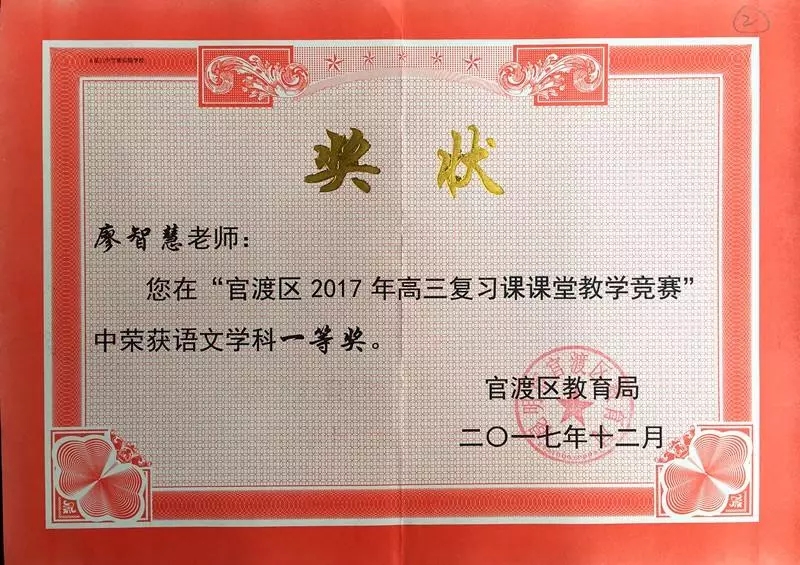 2
奖 状
廖智慧老师：
您在“官渡区2017年高三复习课课堂教学竞赛”
中荣获语文学科一等奖。
官渡区教育局
二〇一七年十二月